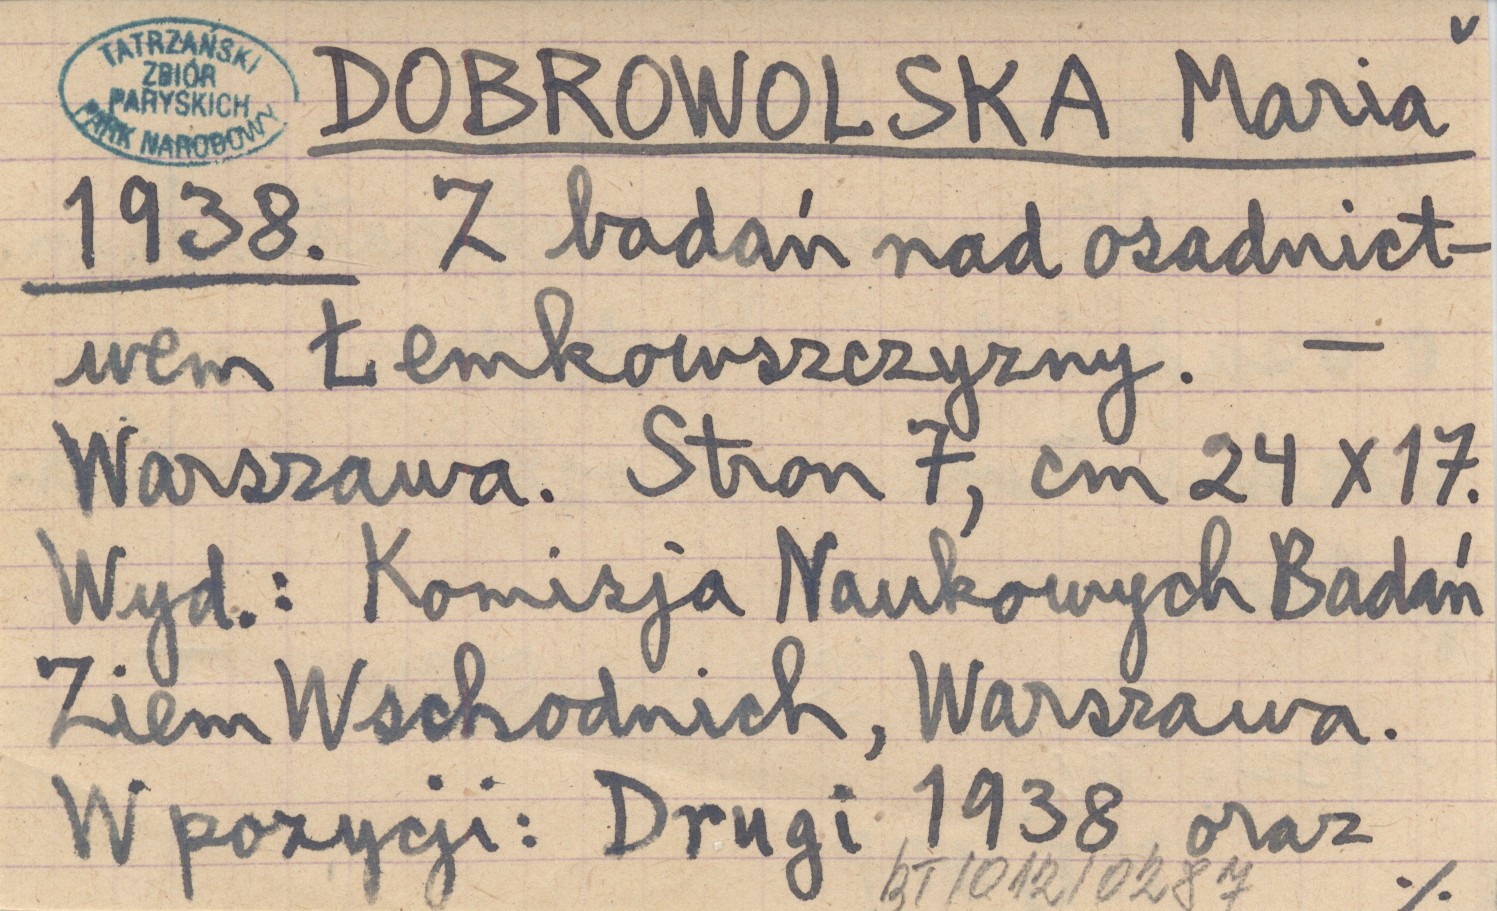 v
TATRZAŃSKI
ZBIÓR
PARYSKICH
PARK NARODOWY
DOBROWOLSKA Maria
1938. Z badań nad osadnict-
wem Łemkowszczyzny. —
Warszawa. Stron 7, cm 24 x 17.
Wyd.: Komisja Naukowych Badań
Ziem Wschodnich, Warszawa.
W pozycji: Drugi 1938 oraz
BT/012/0287
·/.